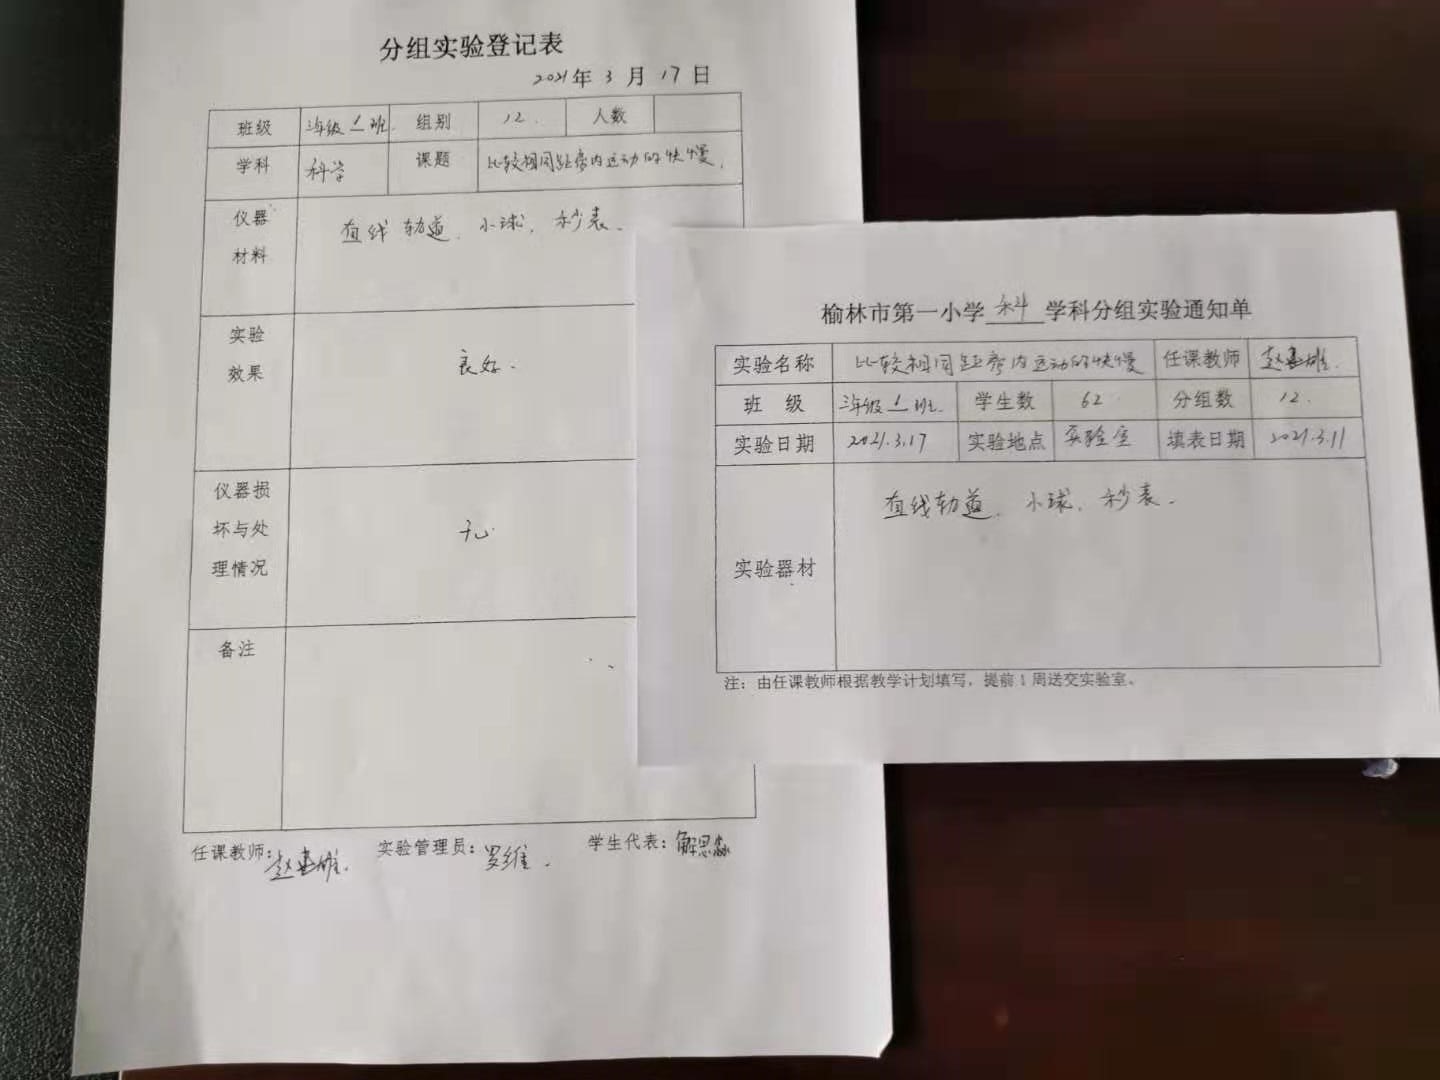 分组实验登记表
2021年 3 月 17 日
班级 三年级 1 班. 组别 12. 人数
学科 科学 课题 比较相同距离内运动的快慢.
仪器 直线轨道、小球、秒表.
材料
实验 良好.
效果
仪器损
坏与处 无
理情况
备注
任课教师: 赵 雄. 实验管理员: 罗维. 学生代表: 解思淼
榆林市第一小学 科 学科分组实验通知单
实验名称 比较相同距离内运动的快慢 任课教师 赵 雄.
班 级 三年级 1 班. 学生数 62 分组数 12.
实验日期 2021.3.17 实验地点 实验室 填表日期 2021.3.11
直线轨道、小球、秒表.
实验器材
注: 由任课教师根据教学计划填写, 提前 1 周送交实验室。